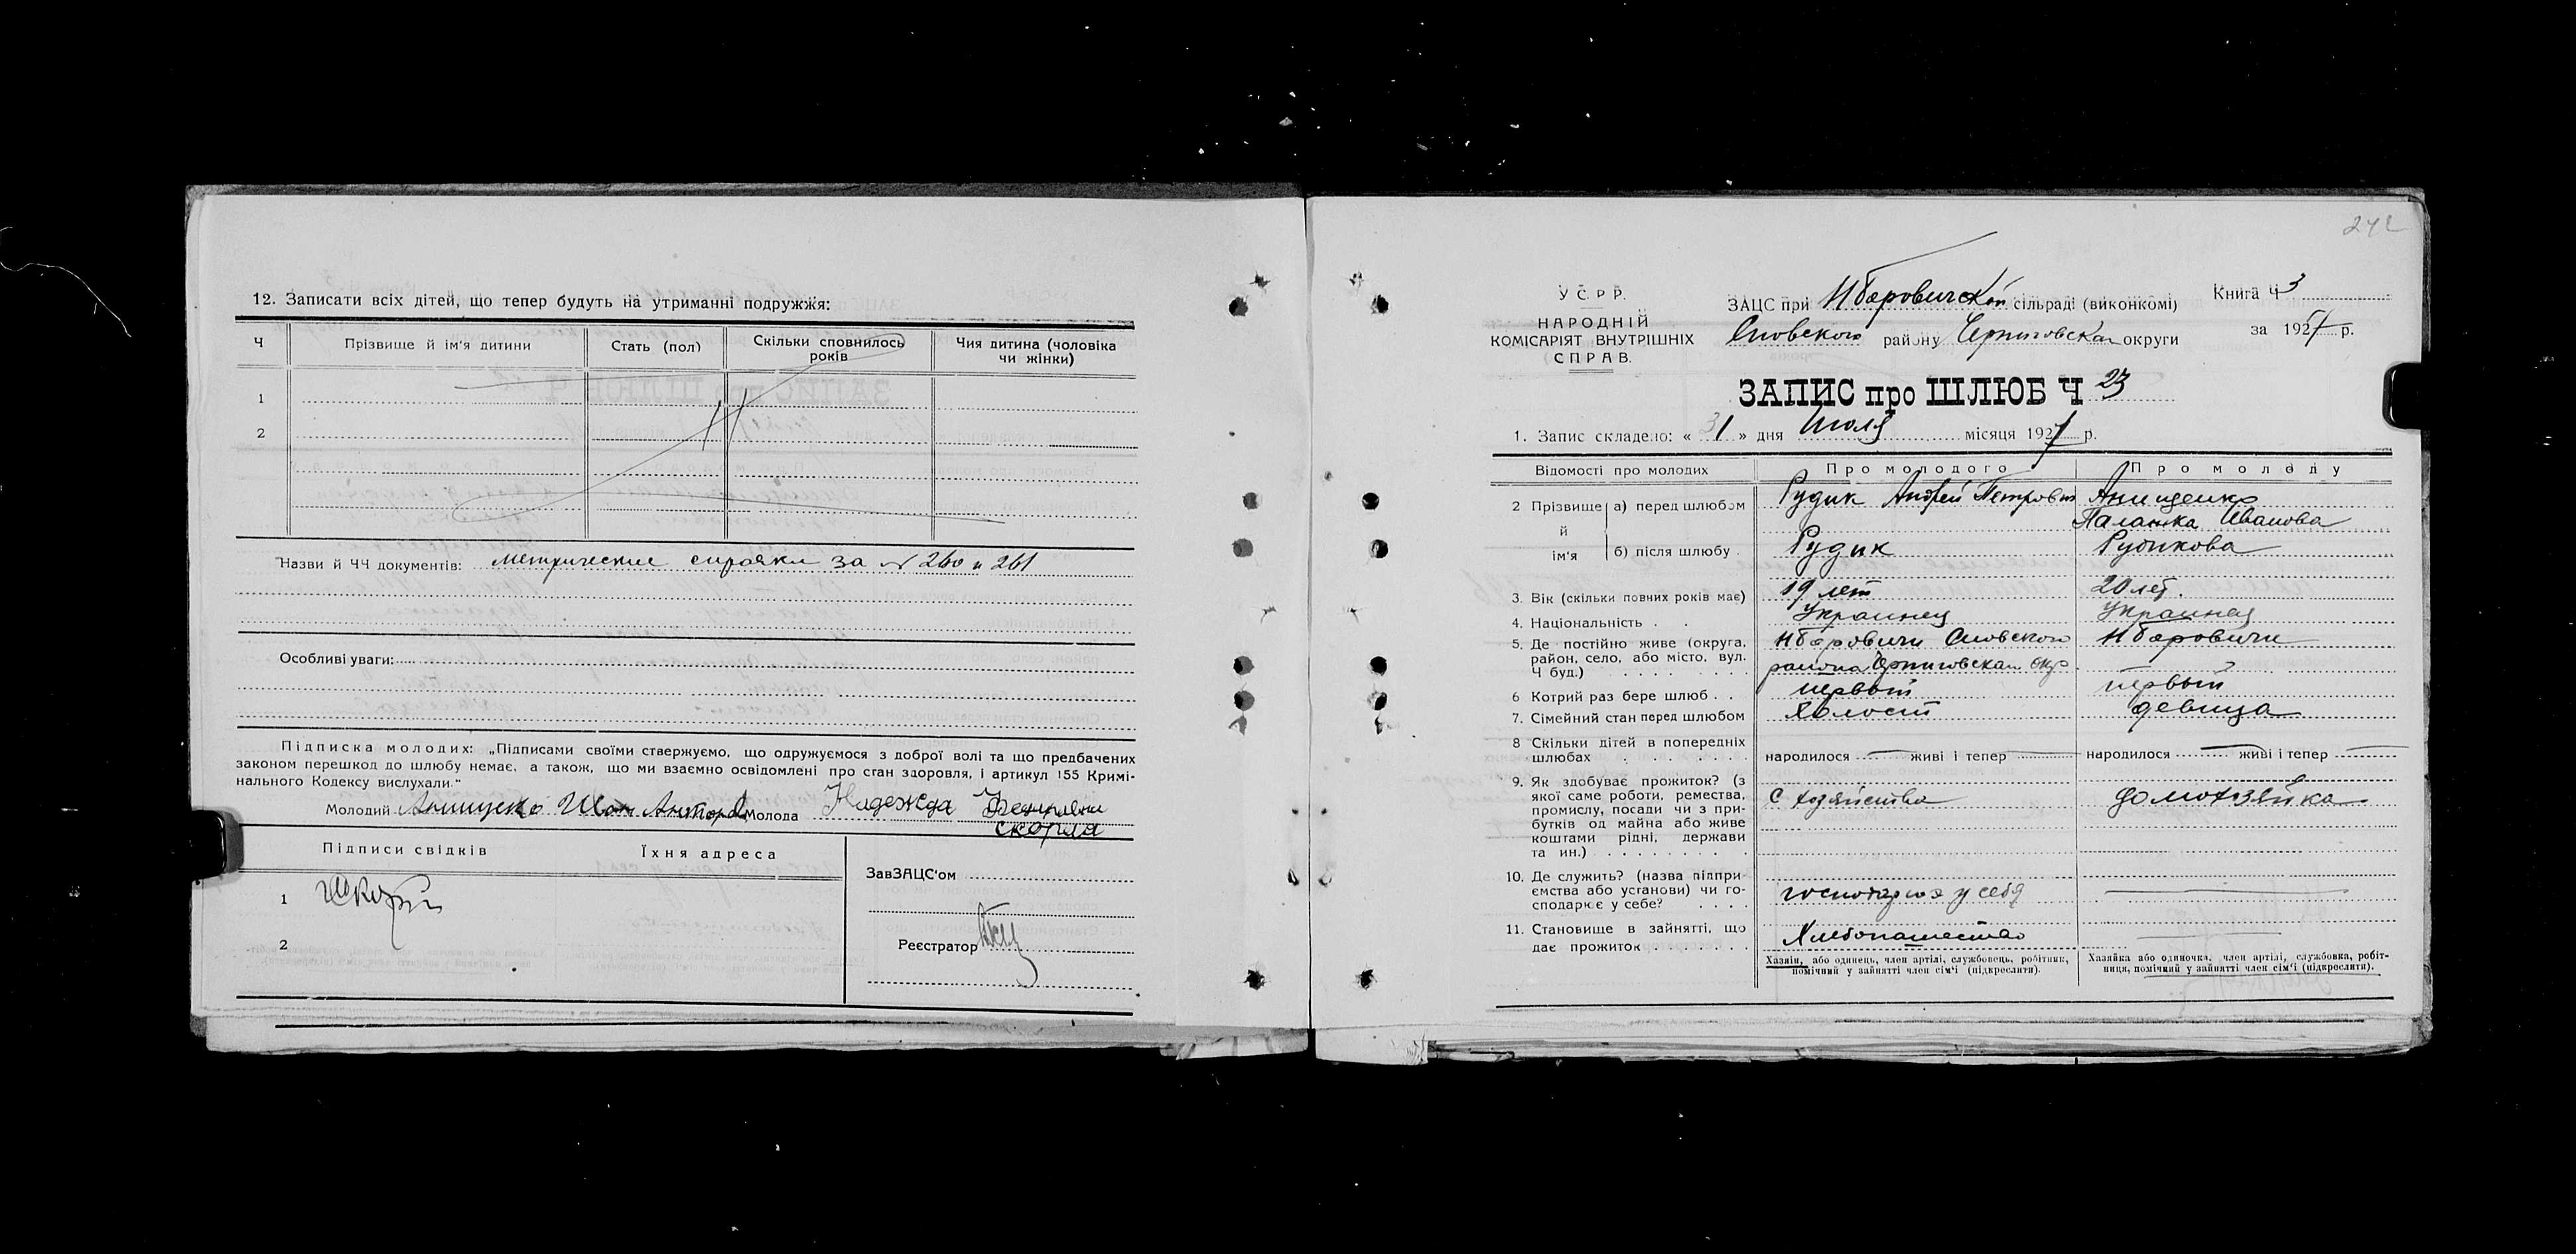 12. Записати всіх дітей, що тепер будуть на утриманні подружжя:
Ч Прізвище й ім'я дитини Стать (пол) Скільки сповнилось років Чия дитина (чоловіка чи жінки)
1
2
Назви й ЧЧ документів: метрические справки за № 260 и 261
Особливі уваги:
Підписка молодих: „Підписами своїми стверджуємо, що одружуємося з доброї волі та що предбачених
законом перешкод до шлюбу немає, а також, що ми взаємно освідомлені про стан здоровля, і артикул 155 Кримі-
нального Кодексу вислухали."
Молодий Иван Молода Надежда
скорла
Підписи свідків Їхня адреса
ЗавЗАЦС'ом
1
Реєстратор
2
242
У С. Р Р.
НАРОДНІЙ
КОМІСАРІЯТ ВНУТРІШНІХ
СПРАВ.
ЗАЦС при Нборовичской сільраді (виконкомі)
Книга Ч 3
Сновского району Черниговская округи
за 1927 р.
ЗАПИС про ШЛЮБ Ч 23
1. Запис складено: « 31 » дня Июля місяця 1927 р.
Відомості про молодих Про молодого Про молоду
2 Прізвище й ім'я а) перед шлюбом Рудик Андрей Петрович Анищенко
Палажка Иванова
б) після шлюбу Рудик Рудикова
3. Вік (скільки повних років має) 19 лет 20 лет.
4. Національність Украинец Украинка
5. Де постійно живе (округа, район, село, або місто, вул. Ч буд.) Нборовичи Сновского Нборовичи
района Черниговская окр.
6 Котрий раз бере шлюб первый первый
7. Сімейний стан перед шлюбом холост девица
8 Скільки дітей в попередніх шлюбах народилося живі і тепер народилося живі і тепер
9. Як здобуває прожиток? (з якої саме роботи, ремества, промислу, посади чи з прибутків од майна або живе коштами рідні, держави та ин.) С хозяйства домохозяйка
10. Де служить? (назва підприємства або установи) чи господарює у себе? у себя
11. Становище в занятті, що дає прожиток Хлебопашество
Хазяїн, або одинець, член артілі, службовець, робітник, помічний у занятті член сім'ї (підкреслити).
Хазяйка або одиночка, член артілі, службовка, робітниця, помічний у занятті член сім'ї (підкреслити).